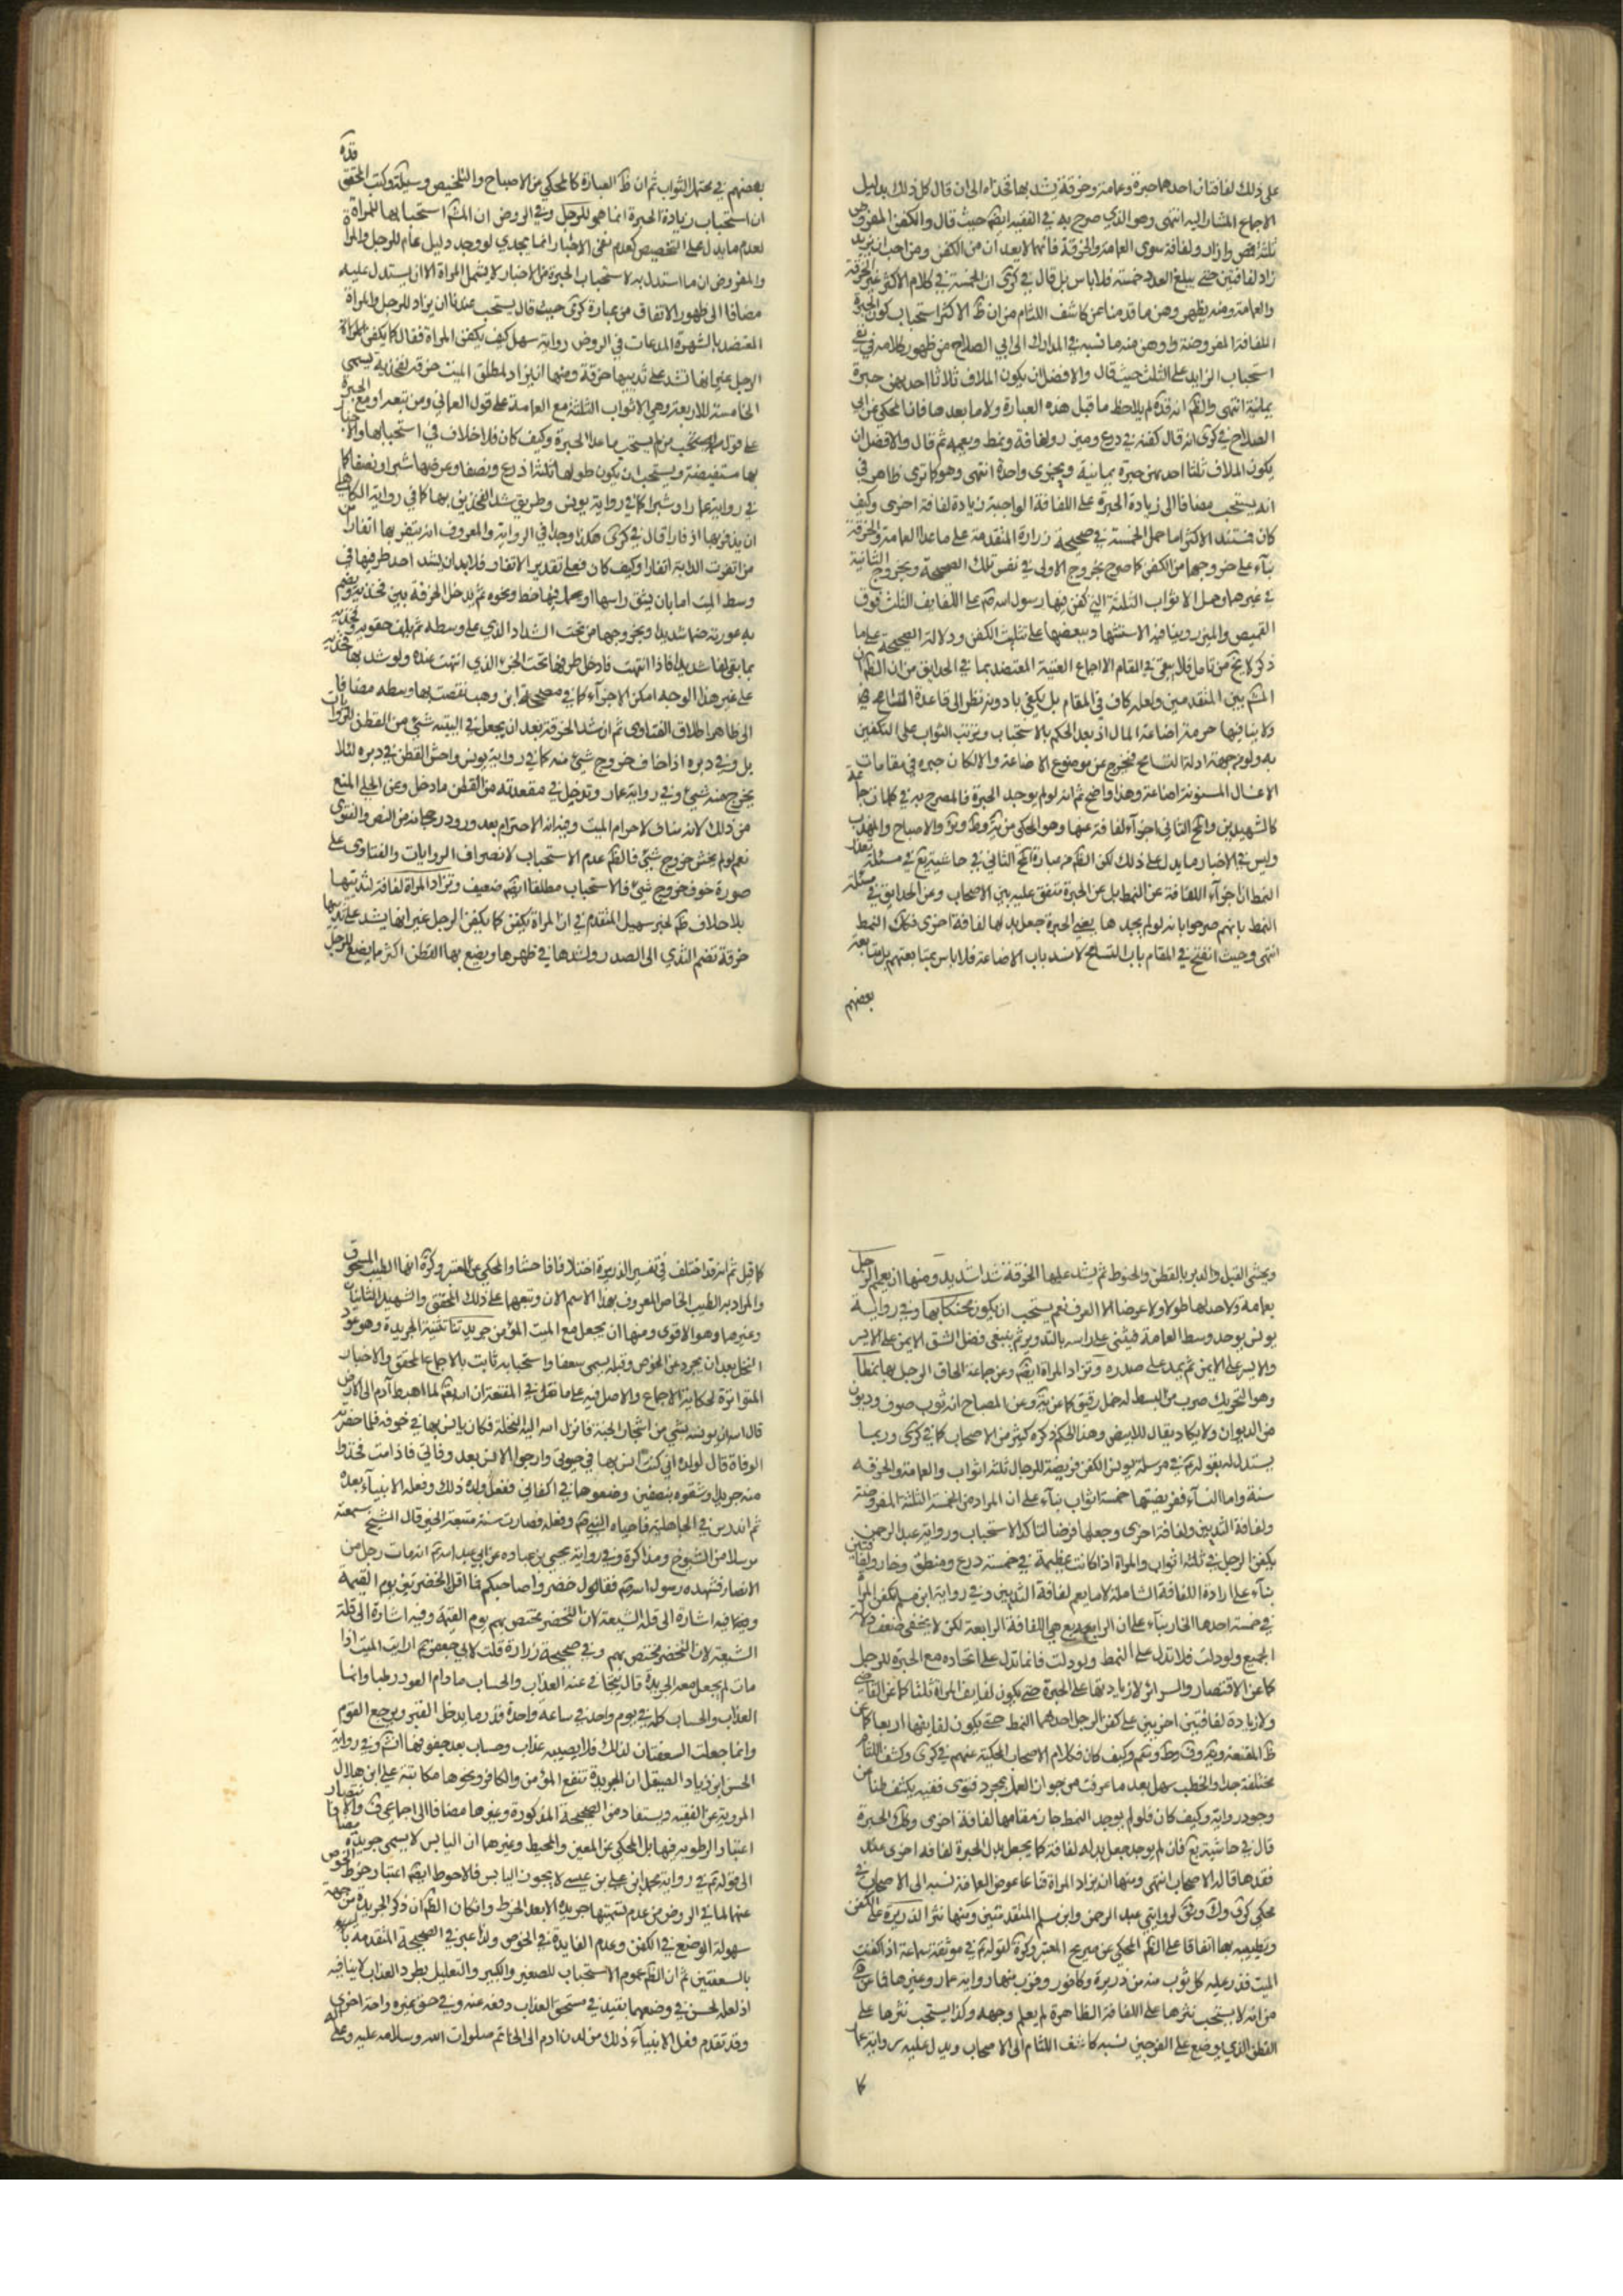 على ذلك لفافتان احدهما حبرة وعمامة وخرقة يشد بها فخذاه الى ان قال كل ذلك بدليل
الاجماع المشار اليه انتهى وهو الذي صرح به في الفقيه ايضا حيث قال والكفن المفروض
ثلثة قميص وازار ولفافة سوى العمامة والخرقة فانهما لا يعدان من الكفن ومن احب ان يزيد
زاد لفافتين حتى يبلغ العدد خمسة فلا باس بل قال في كرى ان الخمسة في كلام الاكثر غير الخرقة
والعمامة ومنه يظهر وهن ما قدمنا عن كاشف اللثام من ان ظ الاكثر استحباب كون الحبرة
اللفافة المفروضة واوهن منه ما نسبه في المدارك الى ابي الصلاح من ظهور كلامه في نفي
استحباب الزايد على الثلث حيث قال والافضل ان يكون الملاف ثلاثا احديهن حبرة
يمانية انتهى والظ انه قده لم يلاحظ ما قبل هذه العبارة ولا ما بعدها فان المحكي عن ابي
الصلاح في كرى انه قال كفنه في درع ومئزر ولفافة ونمط ويعممه ثم قال والافضل ان
يكون الملاف ثلثا احديهن حبرة يمانية ويجزى واحدة انتهى وهو كما ترى ظاهر في
انه يستحب مضافا الى زيادة الحبرة على اللفافة الواجبة زيادة لفافة اخرى وكيف
كان فمستند الاكثر اما حمل الخمسة في صحيحة زرارة المتقدمة على ما عدا العمامة والخرقة
بناء على خروجها من الكفن كما صرح بخروج الاولى في نفس تلك الصحيحة وبخروج الثانية
في غيرها وحمل الاثواب الثلثة التي كفن فيها رسول الله ص على اللفايف الثلث فوق
القميص والمئزر
ذكر لا يخ من تامل فلم يبق في المقام الا اجماع الغنية المعتضد بما في الحدايق من ان الظ ان
المش بين المتقدمين ولعله كاف في المقام بل يكفي بادونه نظرا الى قاعدة التسامح
ولا ينافيها حرمة اضاعة المال اذ بعد الحكم بالاستحباب وترتب الثواب على التكفين
به ولو من جهة ادلة التسامح فيخرج عن موضوع الاضاعة والا لكان خبره في مقامات
الاغسال المسنونة اضاعة وهذا واضح ثم انه لو لم يوجد الحبرة فالمصرح به في كلمات جماعة
كالشهيدين والمحقق الثاني اجزاء لفافة عنها وهو المحكي من
وليس في الاخبار ما يدل على ذلك لكن الظ من عبارة المحقق الثاني في حاشية يع في مسئلة تعذر
النمط ان اجزاء اللفافة عن النمط بل عن الحبرة متفق عليه بين الاصحاب وعن الحدايق في مسئلة
النمط بانهم صرحوا بانه لو لم يجدها يعني الحبرة جعل بدلها لفافة اخرى فكك النمط
انتهى وحيث انفتح في المقام باب التسامح لانسد باب الاضاعة فلا باس بمتابعتهم بل متابعة
بعضهم
بعضهم في محتمل الثواب ثم ان ظ العبارة كالمحكي عن الاصباح والتلخيص وسيلة وكتب المحقق قده
ان استحباب زيادة الحبرة انما هو للرجل وفي الروض ان المش استحبابها للمراة
لعدم ما يدل على التخصيص كعدم نفي الاخبار انما يجدي لو وجد دليل عام للرجل والمراة
والمفروض ان ما استدل به لاستحباب الحبرة من الاخبار لا يشمل المراة الا ان يستدل عليه
مضافا الى ظهور الاتفاق من عبارة كرى حيث قال يستحب عندنا ان يزاد للرجل والمراة
المعتضد بالشهرة المدعات في الروض رواية سهل كيف يكفن المراة فقال كما يكفن الرجل
الرجل غير انها تشد على ثدييها خرقة ومنها ان يزاد لمطلق الميت خرقة لفخذيه يسمى
الخامسة للاربعة وهي الاثواب الثلثة مع العمامة على قول العماني ومن تبعه او مع الحبرة
على قول من لم يستحب ما عدا الحبرة وكيف كان فلا خلاف في استحبابها والاخبار
بها مستفيضة ويستحب ان يكون طولها ثلثة اذرع ونصفا وعرضها شبرا ونصفا كما
في رواية عمار او شبرا كما في رواية يونس وطريق شد الفخذين بها كما في رواية الكاهلي
ان يذفر بها اذفارا قال في كرى هكذا وجد في الرواية والمعروف انه يثفر بها اثفارا
من اثفرت الدابة اثفارا وكيف كان فعلى تقدير الاثفار فلا بد ان يشد احد طرفيها في
وسط الميت اما بان يشق راسها او يجعل فيها خيط ونحوه ثم يدخل الخرقة بين فخذيه ويضم
به عورته ضما شديدا ويخرجها من تحت الشداد الذي على وسطه ثم يلف حقويه وفخذيه
بما بقي لفا شديدا فاذا انتهت فادخل طرفها تحت الجزء الذي انتهت عنده ولو شد بها فخذيه
على غير هذا الوجه امكن الاجزاء كما في مصححة ابن وهب
الى ظاهر اطلاق الفتاوى ثم ان شد الخرقة بعد ان يجعل في اليتيه شيئ من القطن للروايات
بل وفي دبره اذا خاف خروج شيئ منه كما في رواية يونس واحش القطن في دبره لئلا
يخرج منه شيئ وفي رواية عمار وتدخل في مقعدته من القطن ما دخل وعن الحلي المنع
من ذلك لانه مناف لاحترام الميت وفيه انه لا احترام بعد ورود رجحانه من النص والفتوى
نعم لو لم يخش خروج شيئ فالظ عدم الاستحباب لانصراف الروايات والفتاوى على
صورة خوف خروج شيئ فالاستحباب مطلقا ايضا ضعيف وتزاد المراة لفافة لثدييها
بلا خلاف ظ لخبر سهيل المتقدم في ان المراة يكفن كما يكفن الرجل غير انها يشد على ثدييها
خرقة تضم الثدي الى الصدر وتشدها في ظهرها ويضع بها القطن اكثر ما يضع للرجل
ويحشى القبل والدبر بالقطن والحنوط ثم يشد عليها الخرقة شدا شديدا ومنها ان يعمم الرجل
بعمامة ولا حد لها طولا ولا عرضا الا العرف نعم يستحب ان يكون محنكا بها وفي رواية
يونس يوخذ وسط العمامة فيثنى على راسه بالتدوير ثم يبقى فضل الشق الايمن على الايسر
والايسر على الايمن ثم يمد على صدره وتزاد المراة ايضا وعن جماعة الحاق الرجل بها نمطا
وهو بالتحريك ضرب من البسط له خمل رقيق كما عن يه وعن المصباح انه ثوب صوف ذو لون
من الالوان ولا يكاد يقال للابيض وهذا الحكم ذكره كثير من الاصحاب كما في كرى وربما
يستدل له بقوله ع في مرسلة يونس الكفن فريضة للرجال ثلثة اثواب والعمامة والخرقة
سنة واما النساء ففريضتها خمسة اثواب بناء على ان المراد من الخمسة الثلثة المفروضة
ولفافة الثديين ولفافة اخرى وجعلها فرضا لتاكد الاستحباب ورواية عبد الرحمن
يكفن الرجل في ثلثة اثواب والمراة اذا كانت عظيمة في خمسة درع ومنطق وخمار ولفافتين
بناء على ارادة اللفافة الشاملة لا ما يعم لفافة الثديين وفي رواية ابن مسلم تكفن المراة
في خمسة احدها الخمار بناء على ان الرابع هي اللفافة الرابعة لكن لا يخفى ضعف دلالة
الجميع ولو دلت فلا تدل على النمط ولو دلت فانما تدل على اتحاده مع الحبرة للرجل
كما عن الاقتصار والسرائر لا زيادتها على الحبرة حتى يكون لفايف المراة ثلثا كما عن القاضي
ولا زيادة لفافتين اخريين على كفن الرجل احدهما النمط حتى يكون لفايفها اربعا كما عن
ظ المقنعة وكيف كان فكلام الاصحاب المحكية عنهم في كرى وكشف اللثام
مختلفة جدا والخطب سهل بعد ما عرفت من جواز العمل بمجرد فتوى فقيه يكشف ظنا عن
وجود رواية وكيف كان فلو لم يوجد النمط جاز مقامها لفافة اخرى وكك الحبرة
قال في حاشية يع فان لم يوجد جعل بدله لفافة كما يجعل بدل الحبرة لفافة اخرى عند
فقدها قاله الاصحاب انتهى ومنها ان يزاد المراة قناعا عوض العمامة نسبه الى الاصحاب في
محكي كرى ولك وفق لروايتي عبد الرحمن وابن مسلم المتقدمتين ومنها نثر الذريرة على الكفن
وتطييبه بها اتفاقا على الظ المحكي عن صريح المعتبر وكرة لقوله ع في موثقة سماعة اذا كفنت
الميت فذر عليه كل ثوب منه من ذريرة وكافور وقرب منها رواية عمار وغيرها فما عن في
من انه لا يستحب نثرها على اللفافة الظاهرة لم يعلم وجهه وكذا يستحب نثرها على
القطن الذي يوضع على الفرجين نسبه كاشف اللثام الى الاصحاب ويدل عليه رواية عمار
كما
كما قيل ثم انه قد اختلف في تفسير الذريرة اختلافا فاحشا والمحكي عن المعتبر وكرة انها الطيب المسحوق
والمراد به الطيب الخاص المعروف بهذا الاسم الان وتبعها على ذلك المحقق والشهيد الثانيان
وغيرهما وهو الاقوى ومنها ان يجعل مع الميت المؤمن جريدتان تثنية الجريدة وهو عود
النخل بعد ان يجرد عن الخوص وقبله يسمى سعفا واستحبابه ثابت بالاجماع المحقق والاخبار
المتواترة كحكاية الاجماع والاصل فيه على ما نقل في المقنعة ان الله تع لما اهبط آدم الى الارض
قال الله ان يونسه بشيئ من اشجار الجنة فانزل الله اليه النخلة فكان يانس بها في خوفه فلما حضرته
الوفاة قال لولده اني كنت انس بها في حيوتي وارجو الانس بعد وفاتي فاذا مت فخذوا
منه جريدا وشقوه بنصفين وضعوها في اكفاني ففعل ولده ذلك وفعله الانبياء بعده
ثم اندرس في الجاهلية فاحياه النبي ص وفعله فصارت سنة متبعة الخبر قال الشيخ سمعته
مرسلا من الشيوخ ومذاكرة وفي رواية يحيى بن عباده عن ابي عبد الله ع انه مات رجل من
الانصار فشهده رسول الله ص فقال خضروا صاحبكم فما اقل المخضرين يوم القيمة
وفيه اشارة الى قلة الشيعة لان التخضير مختص بهم يوم القيمة وفيه اشارة الى قلة
الشيعة لان التخضير مختص بهم وفي صحيحة زرارة قلت لابي جعفر ع ارايت الميت اذا
مات لم يجعل معه الجريدة قال يتجافى عنه العذاب والحساب ما دام العود رطبا وانما
العذاب والحساب كله في يوم واحد في ساعة واحدة قدر ما يدخل القبر ويرجع القوم
وانما جعلت السعفتان لذلك فلا يصيبه عذاب وحساب بعد جفوفهما انش وفي رواية
الحسن بن زياد الصيقل ان الجريدة تنفع المؤمن والكافر ونحوها مكاتبة علي ابن هلال
المروية عن الفقيه ويستفاد من الصحيحة المذكورة وغيرها مضافا الى اجماعي ف والانتصار
اعتبار الرطوبة فيها بل المحكي عن العين والمحيط وغيرها ان اليابس لا يسمى جريدة مضافا
الى قوله ع في رواية محمد ابن علي بن عيسى لا يجوز اليابس فالاحوط ايضا اعتبار خرط الخوص
عنها لما في الروض من عدم تسميتها جريدة الا بعد الخرط وان كان الظ ان ذكر الجريدة من جهة
سهولة الوضع في الكفن وعدم الفايدة في الخوص ولذا عبر في الصحيحة المتقدمة
بالسعفتين ثم ان الظ عموم الاستحباب للصغير والكبير والتعليل بطرد العذاب لا ينافيه
اذ لعله لحسن في وضعهما يفيد في مستحق العذاب دفعه عنه وفي حق غيره راحة اخرى
وقد تقدم وفعل الانبياء ذلك من لدن ادم الى الخاتم صلوات الله وسلامه عليه وعلى اله